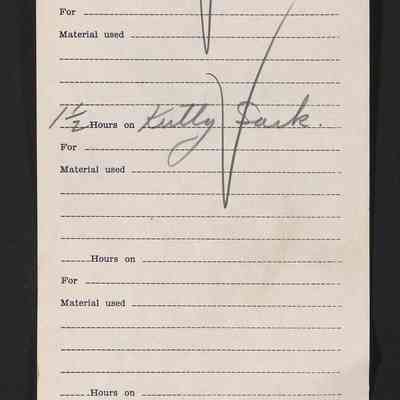 For
Material used
1½ Hours on Kutty Sark.
For
Material used
Hours on
For
Material used
Hours on